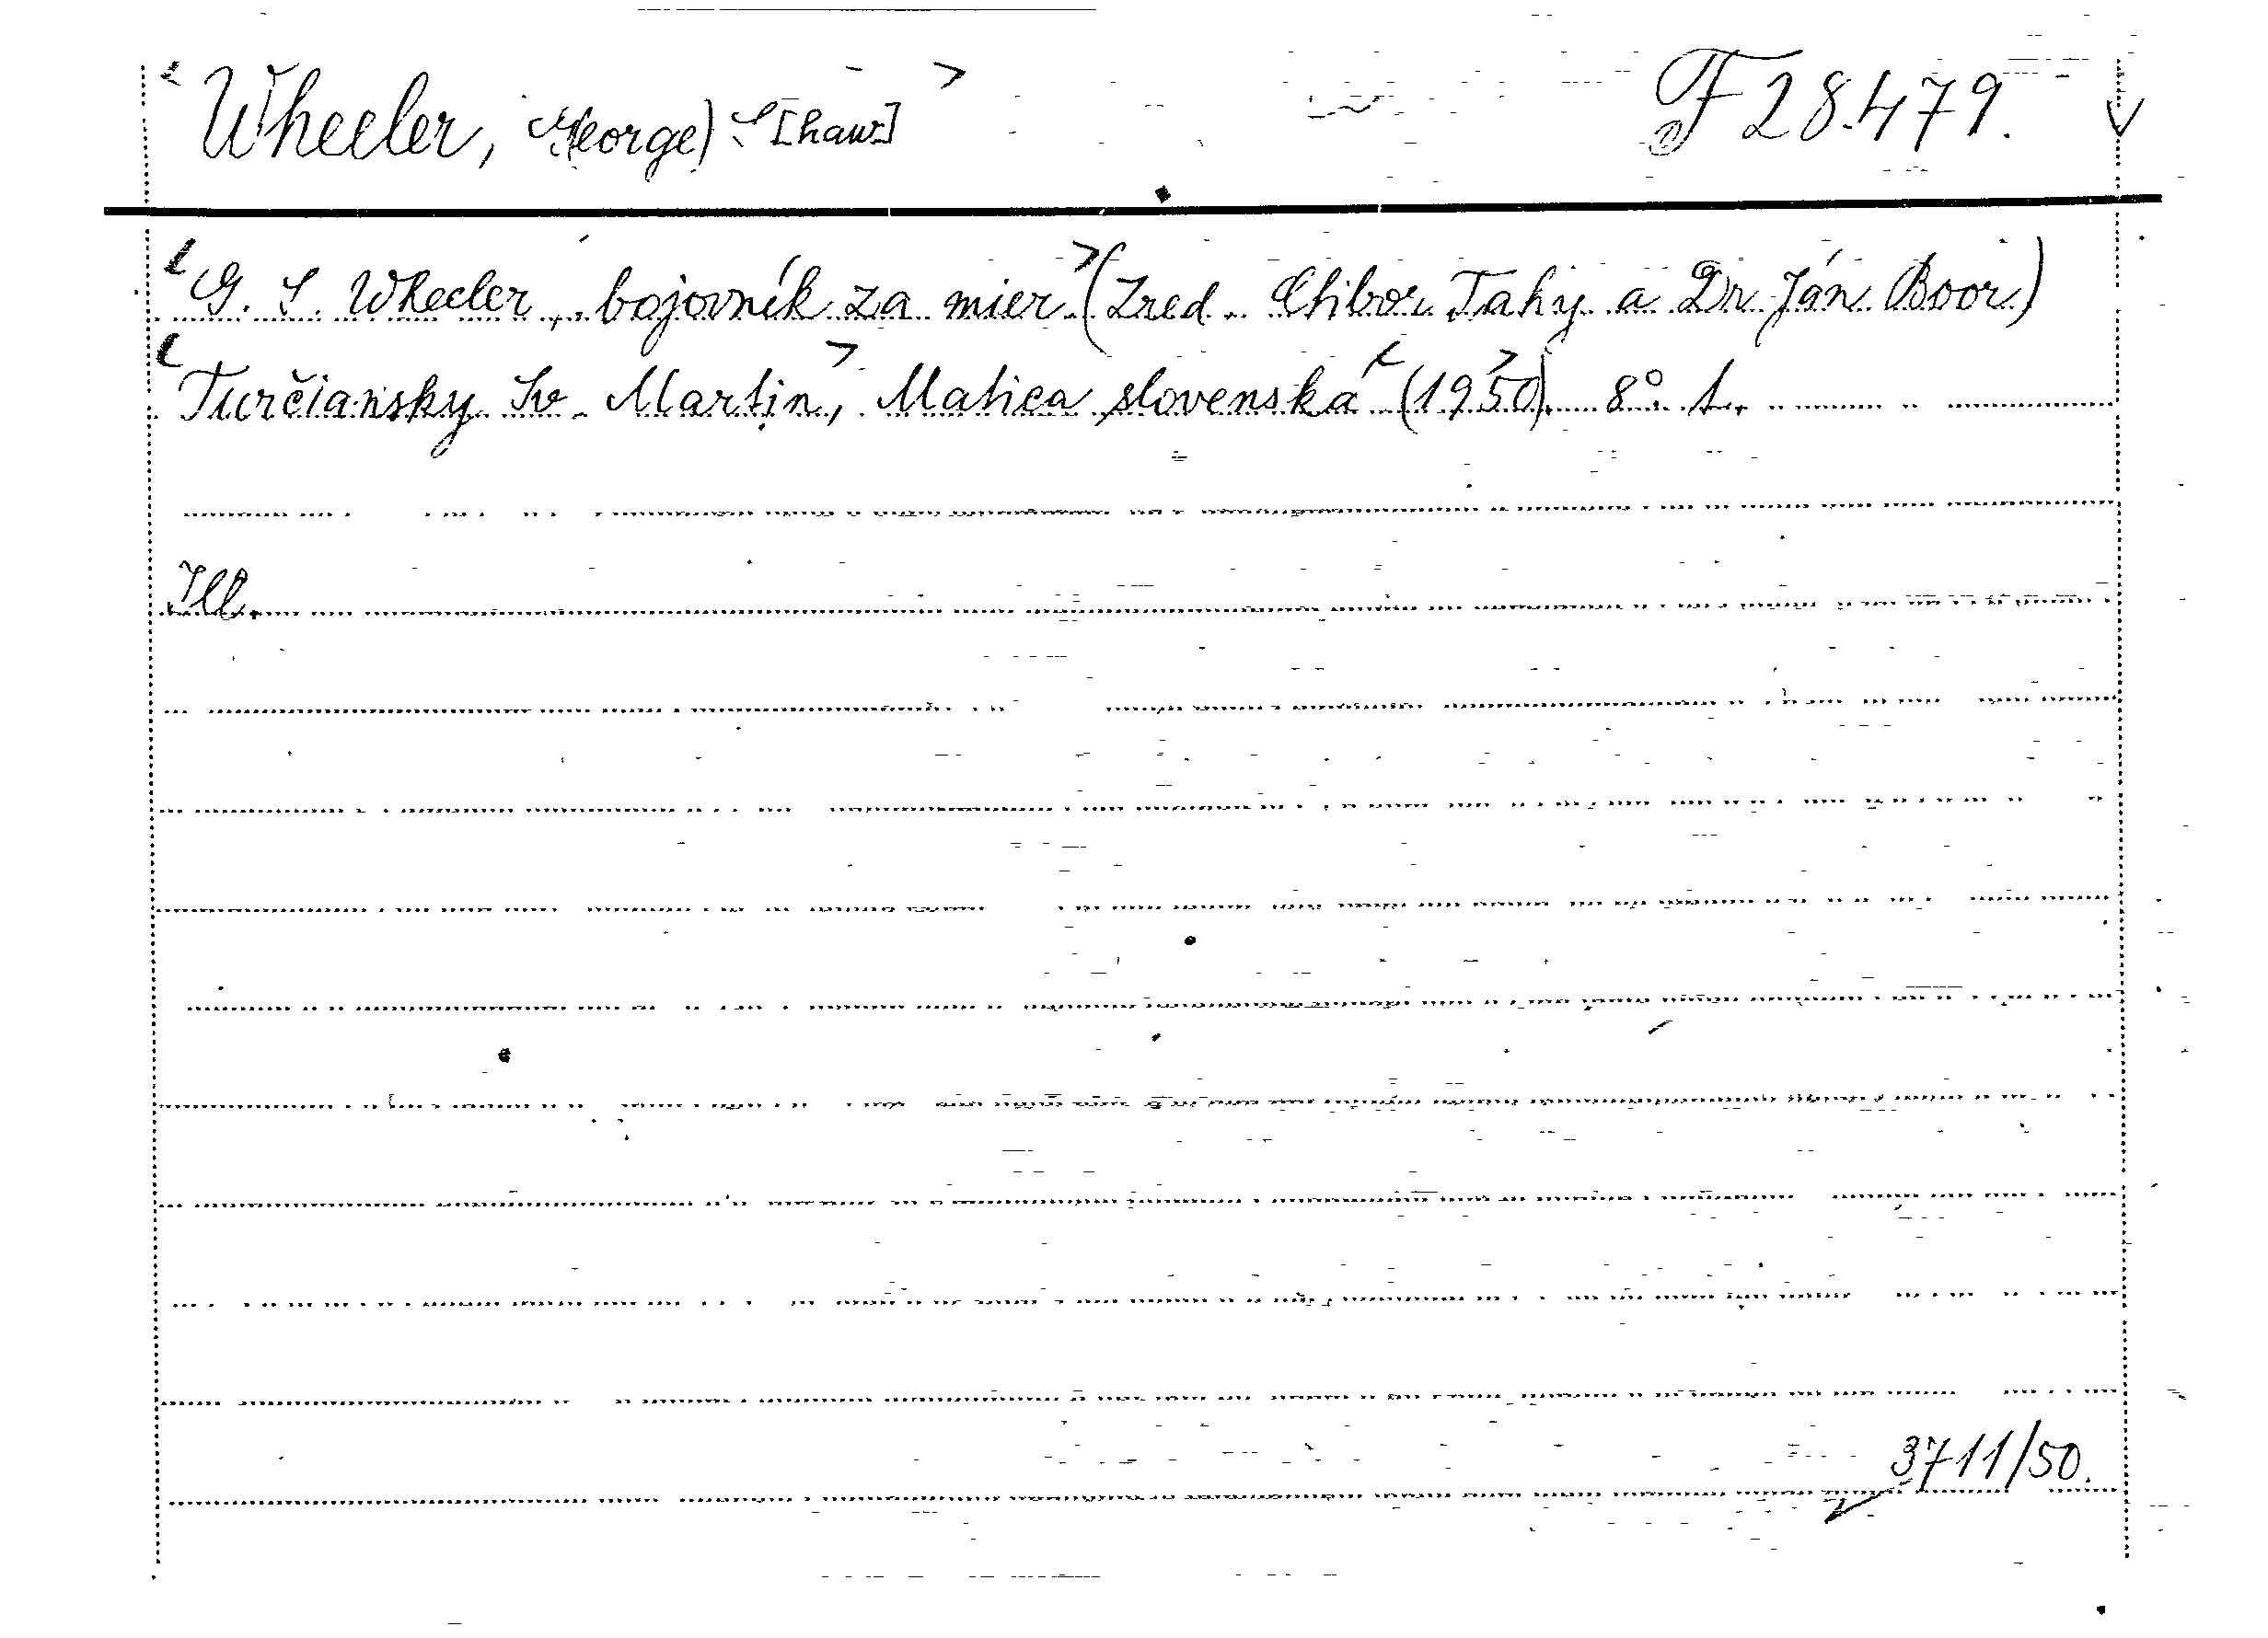 Wheeler, G(eorge) S[haw] F 28.479.
G. S. Wheeler, bojovník za mier. (Zred. Ctibor Tahy a Dr Ján Boor)
Turčiansky Sv. Martin, Matica slovenská (1950). 8°. 1.
Ill.
3711/50.